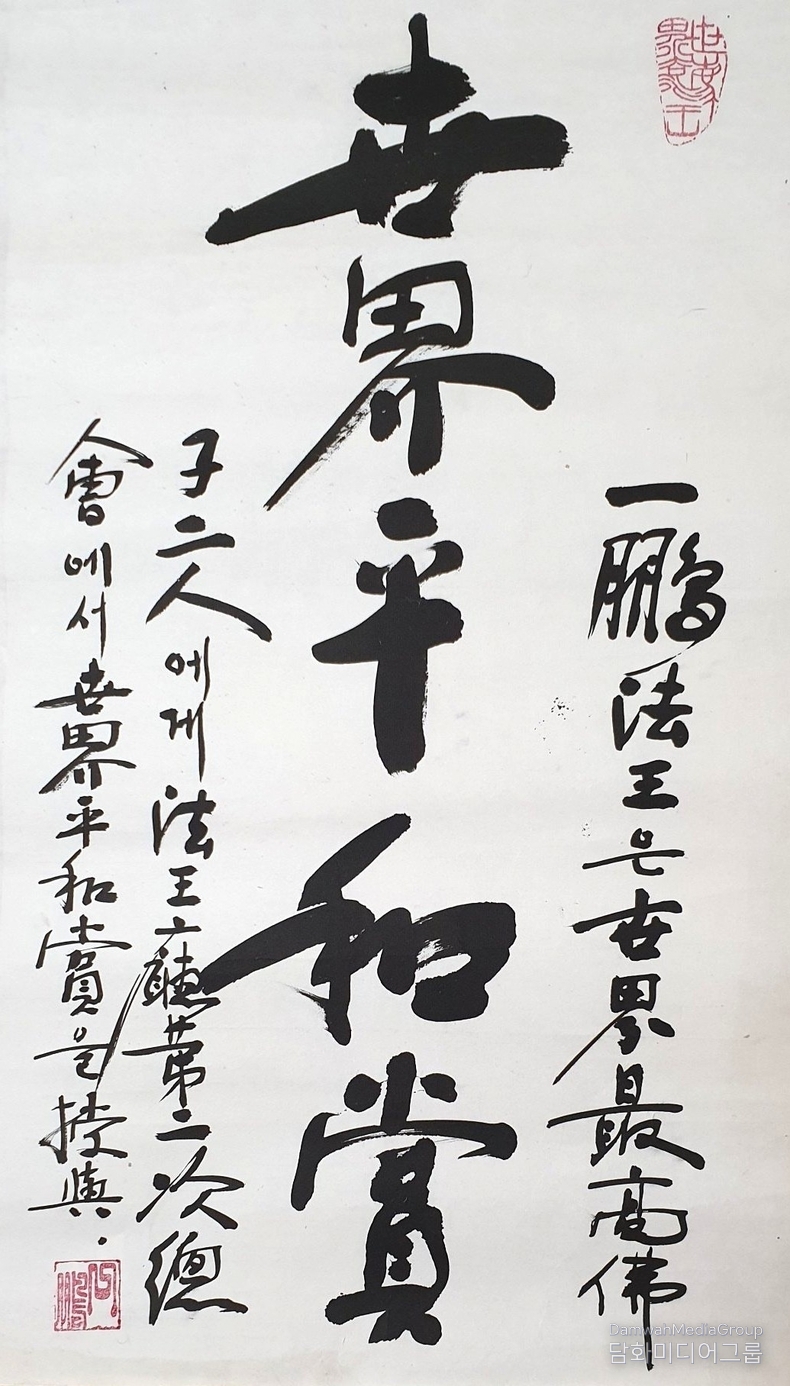 世界平和賞
一鵬法王은世界最高佛
子二人에게法王廳第二次總
會에서世界平和賞을授與.
DamwhaMediaGroup
담화미디어그룹